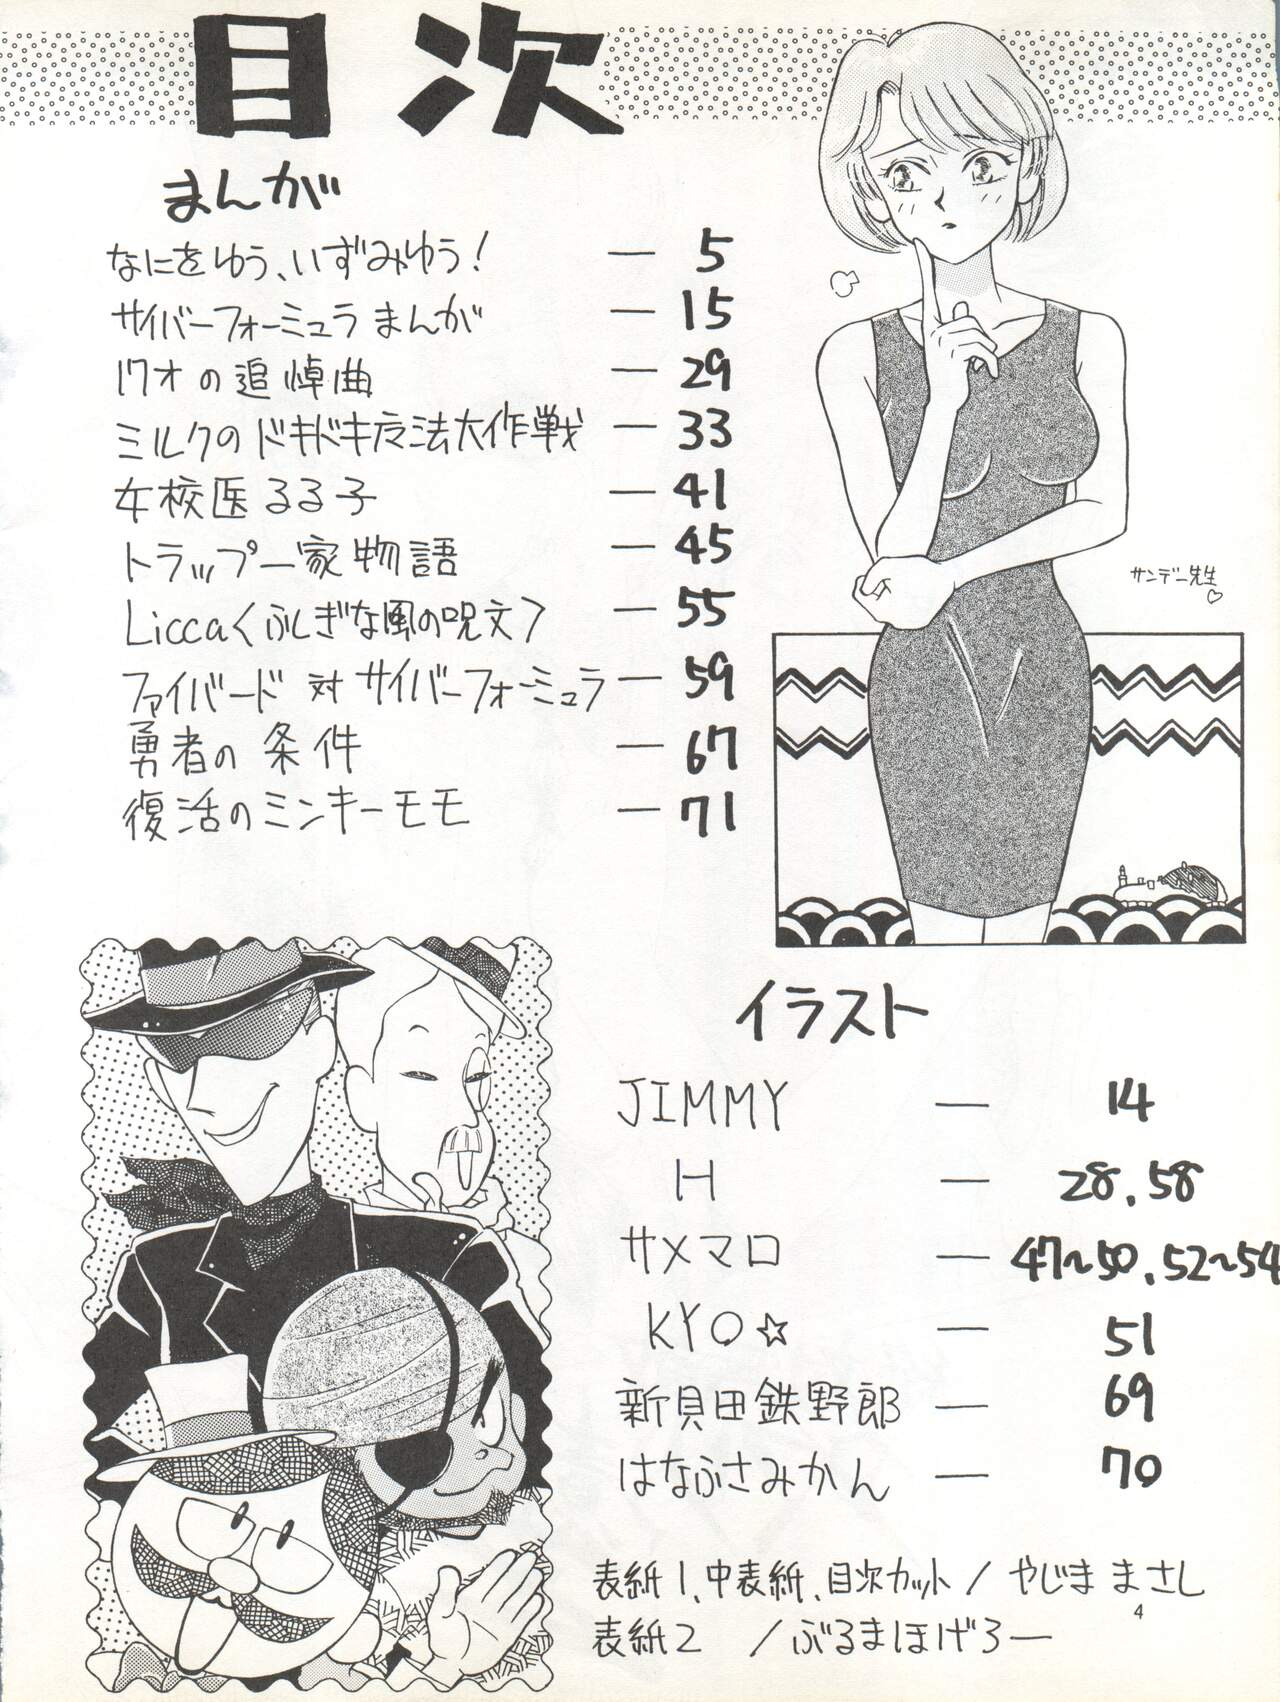 目次
まんが
なにをゆう、いずみゆう! — 5
サイバーフォーミュラまんが — 15
17才の追悼曲 — 29
ミルクのドキドキ魔法大作戦 — 33
女校医るる子 — 41
トラップ一家物語 — 45
Licca〈ふしぎな風の呪文〉 — 55
ファイバード 対 サイバーフォーミュラ — 59
勇者の条件 — 67
復活のミンキーモモ — 71
サンデー先生♡
イラスト
JIMMY — 14
H — 28, 58
サメマロ — 47~50, 52~54
KYO☆ — 51
新貝田鉄野郎 — 69
はなふさみかん — 70
表紙1、中表紙、目次カット / やじままさし
表紙2 / ぶるまほげろー
4